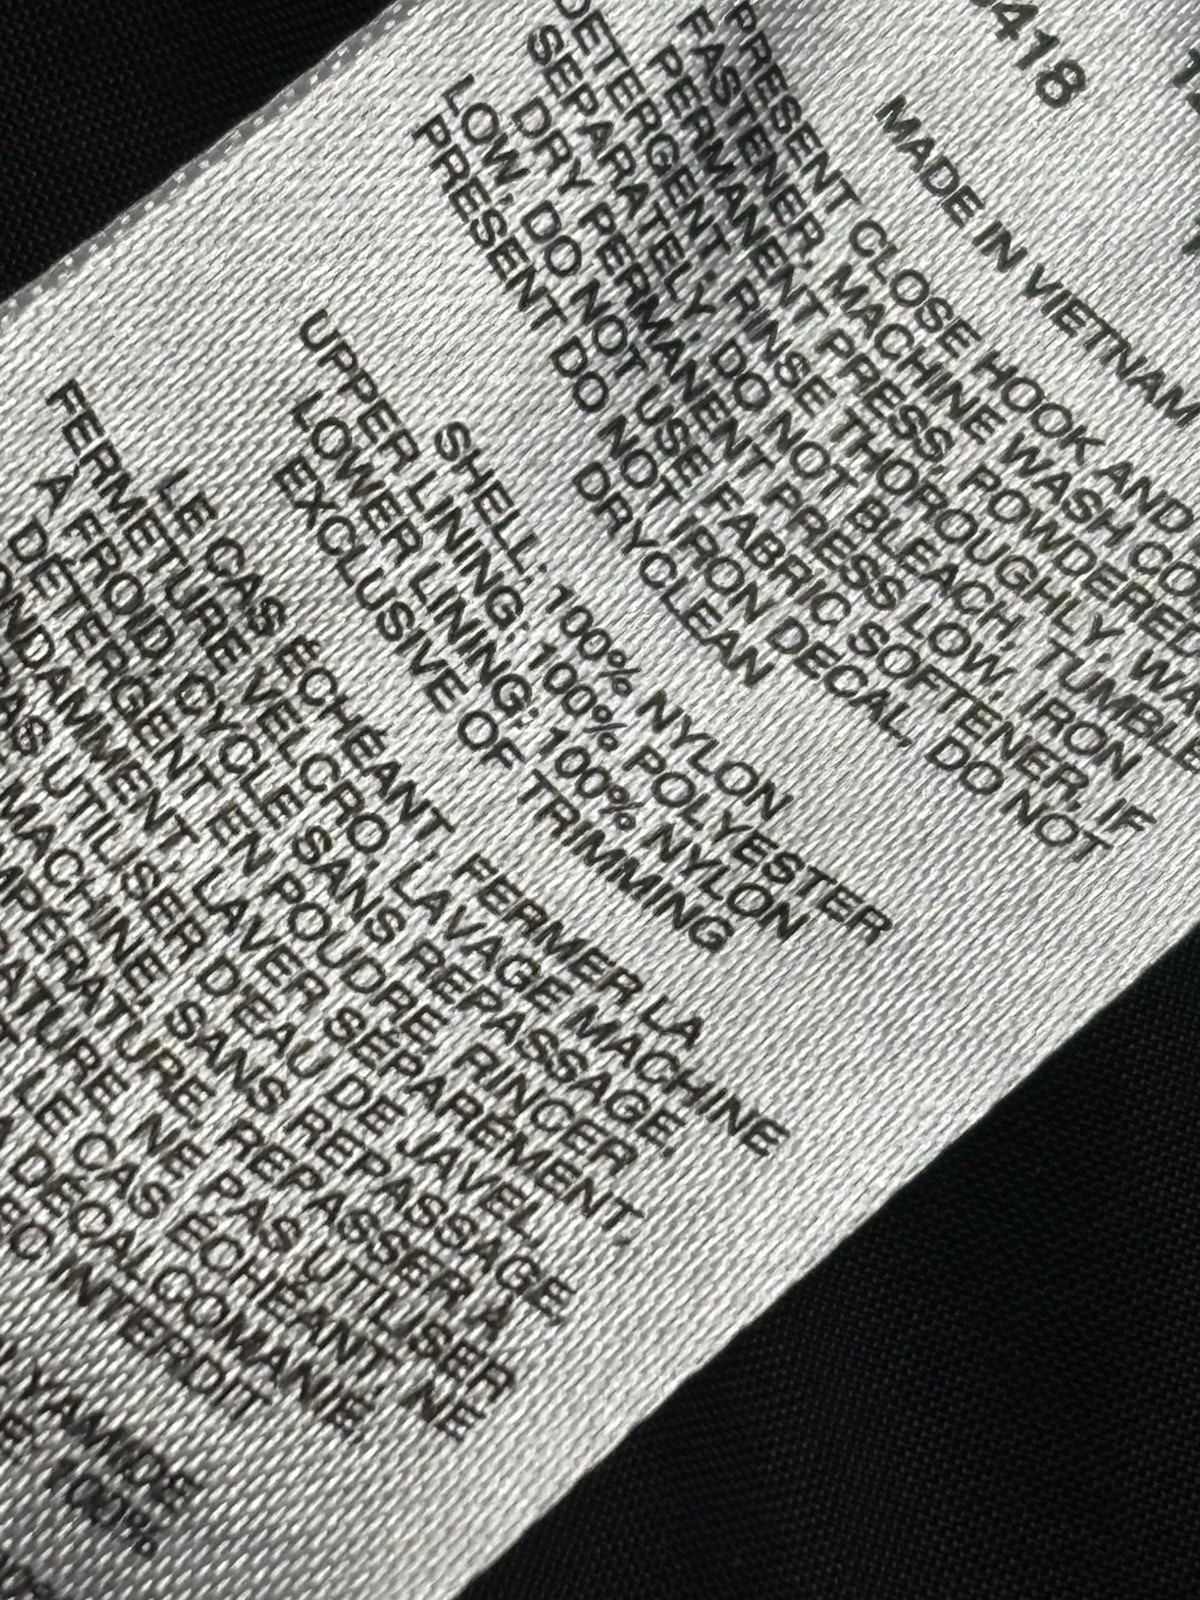 418
MADE IN VIETNAM
PRESENT CLOSE HOOK AND
FASTENER, MACHINE WASH
PERMANENT PRESS, POWDERED
DETERGENT, RINSE THOROUGHLY,
SEPARATELY, DO NOT BLEACH, TUMBLE
DRY PERMANENT PRESS LOW, IRON
LOW, DO NOT USE FABRIC SOFTENER, IF
PRESENT DO NOT IRON DECAL, DO NOT
DRYCLEAN
SHELL: 100% NYLON
UPPER LINING: 100% POLYESTER
LOWER LINING: 100% NYLON
EXCLUSIVE OF TRIMMING
LE CAS ÉCHÉANT, FERMER LA
FERMETURE VELCRO, LAVAGE MACHINE
À FROID, CYCLE SANS REPASSAGE,
DÉTERGENT EN POUDRE, RINCER
LAVER SÉPARÉMENT,
UTILISER D'EAU DE JAVEL,
MACHINE, SANS REPASSAGE
REPASSER À
NE PAS UTILISER
LE CAS ÉCHÉANT NE
DÉCALCOMANIE,
INTERDIT